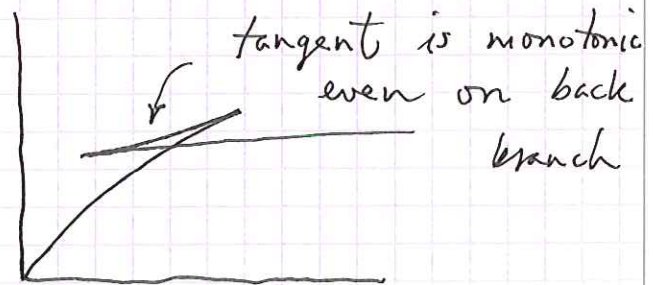 tangent is monotonic
even on back
branch